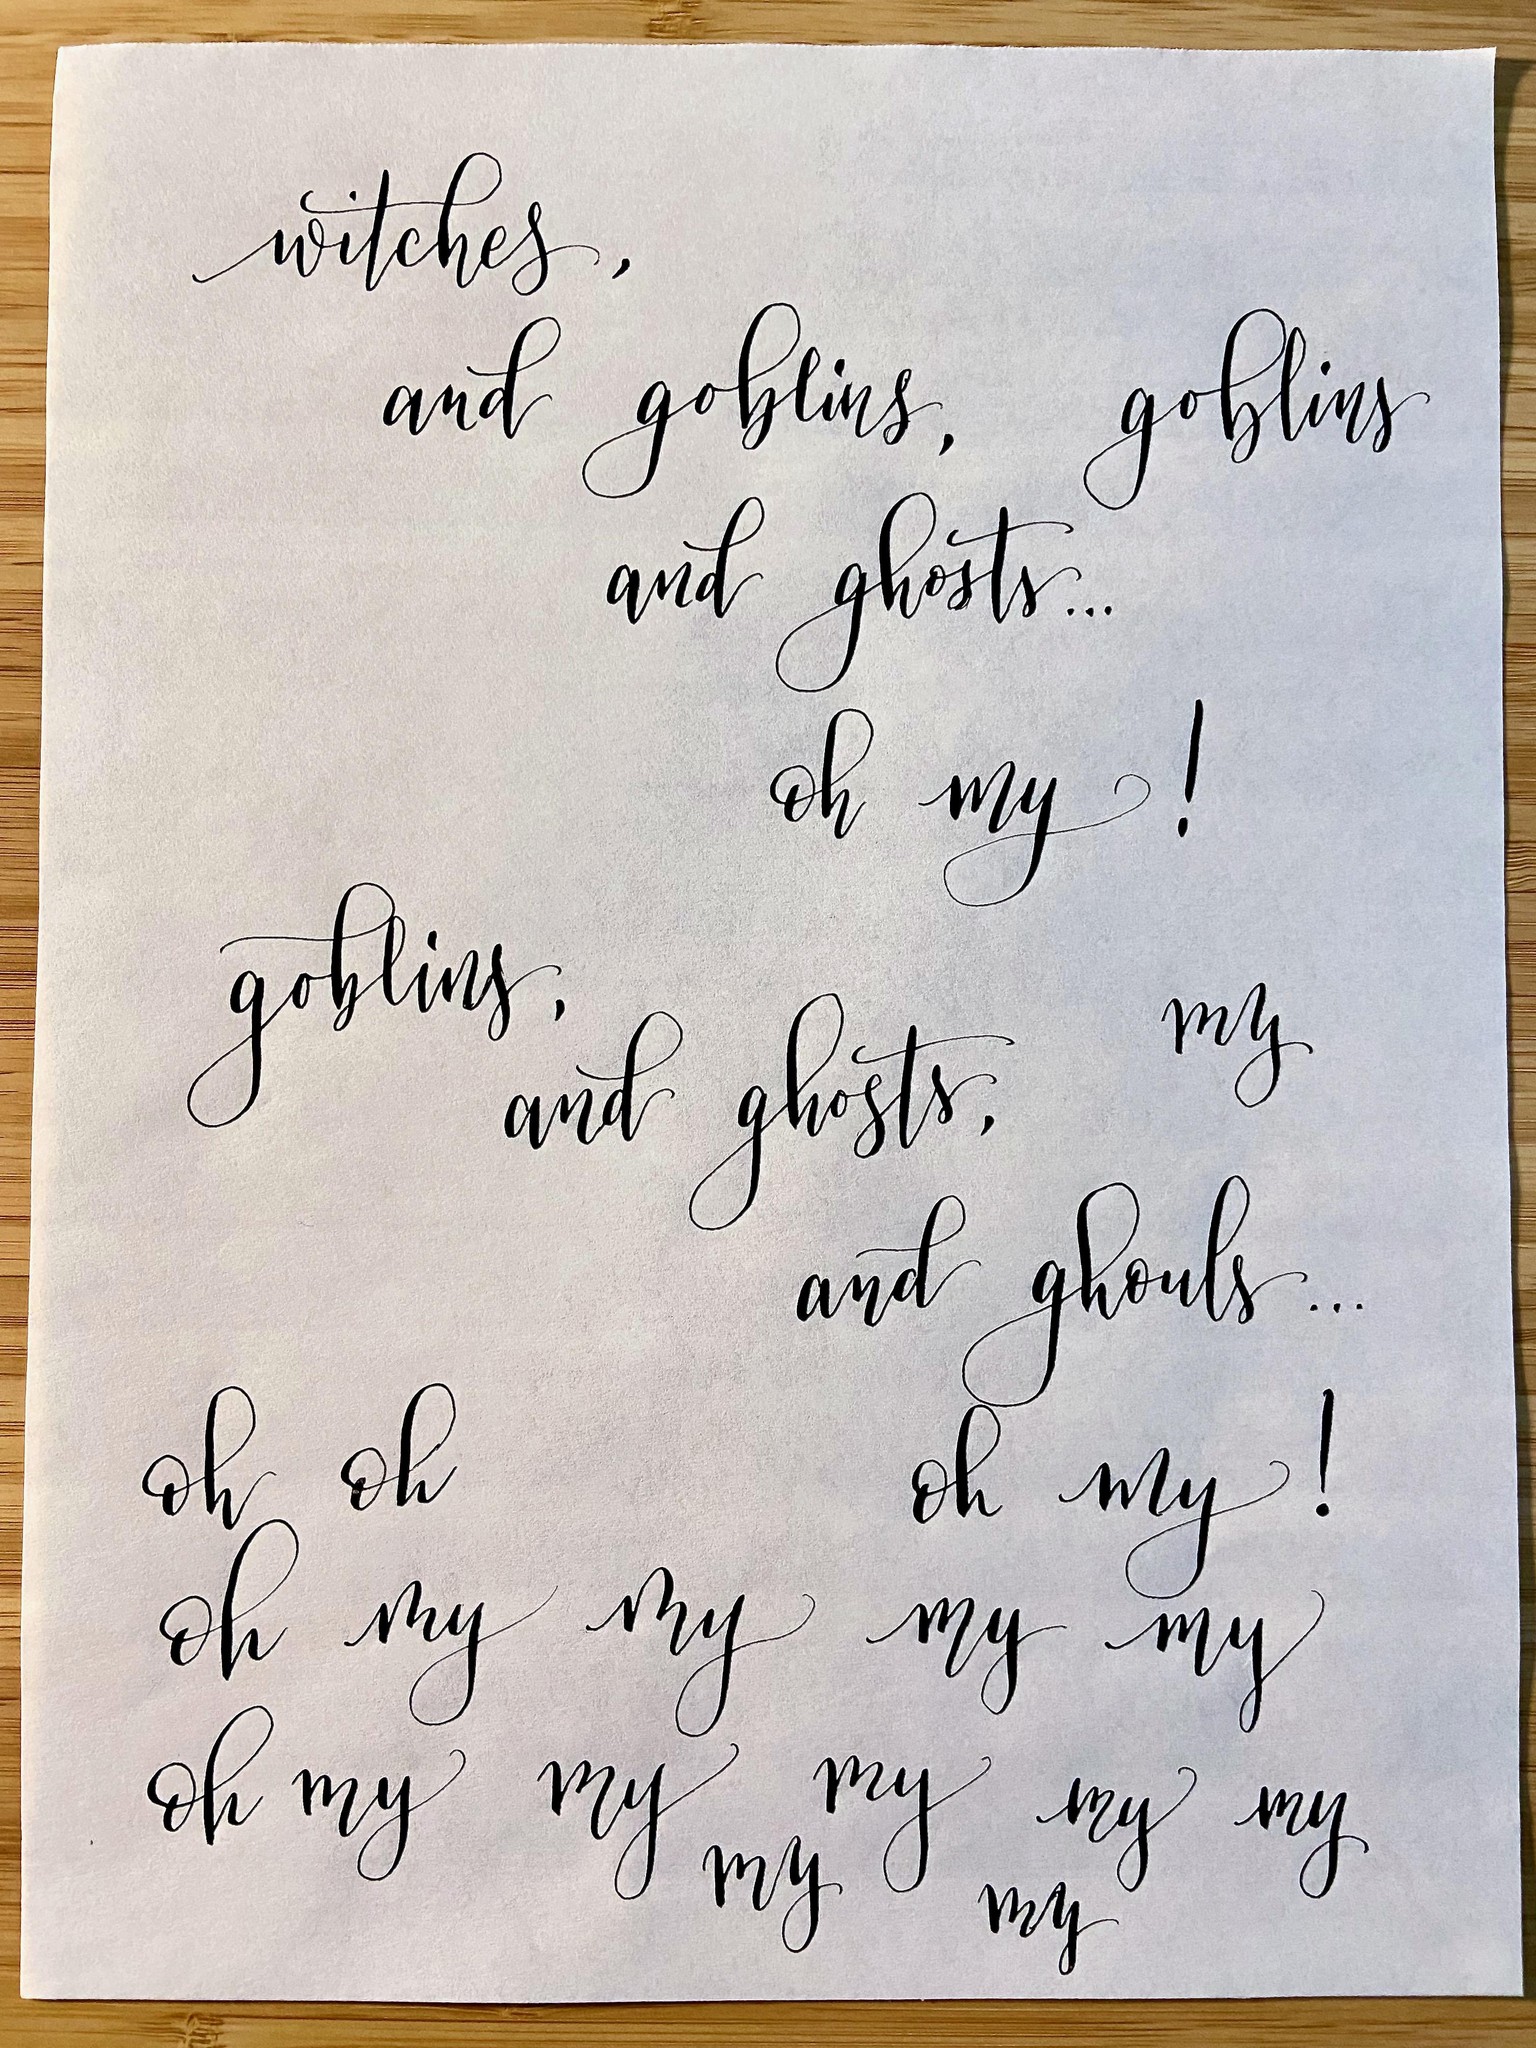 witches,
and goblins, goblins
and ghosts...
oh my!
goblins,
my
and ghosts,
and ghouls...
oh oh oh my!
oh my my my my
oh my my my my my
my my